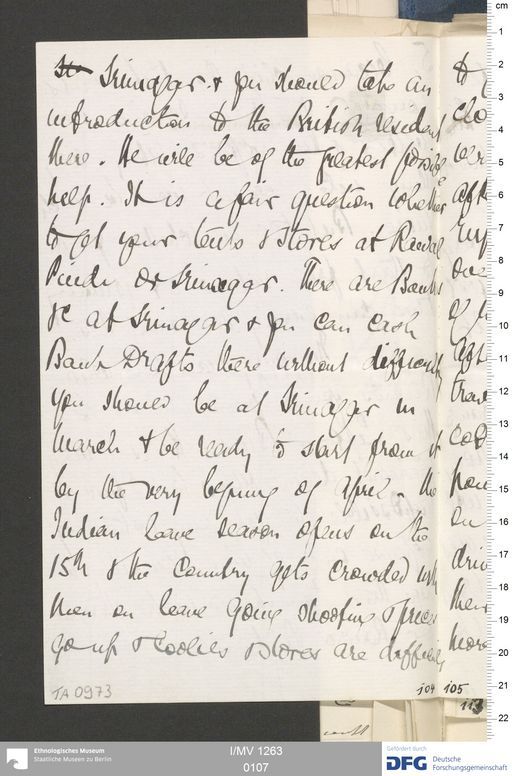 Srinagar. & you should take an
introduction to the British resident
there. He will be of the greatest possible
help. It is a fair question whether
to get your tents & stores at Rawal
Pindi or Srinaggar. There are Banks
&c at Srinagar & you can cash
Bank Drafts there without difficulty
You should be at Srinagger in
March & be ready to start from it
by the very begining of April. The
Indian leave season opens on the
15th & the Country gets crowded with
Men on leave going shooting & prices
go up & Coolies & stores are difficult
TA 0973
104 105
113
cm
1
2
3
4
5
6
7
8
9
10
11
12
13
14
15
16
17
18
19
20
21
22
Ethnologisches Museum
Staatliche Museen zu Berlin
I/MV 1263
0107
Gefördert durch
DFG Deutsche
Forschungsgemeinschaft